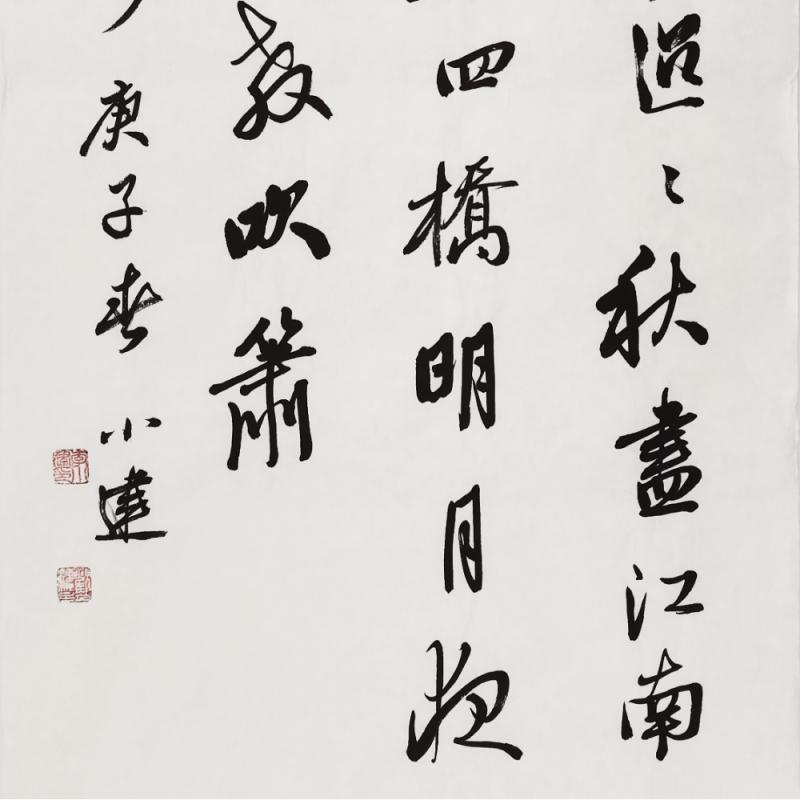 迢〻秋盡江南
四橋明月夜
教吹簫
庚子春 小達